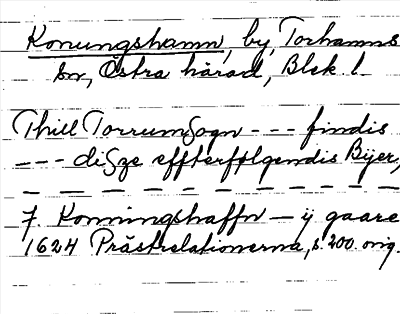 Konungshamn, by, Torhamns
sn, Östra härad, Blek. l.
Thill TorrumSogn --- findis
--- diSze effterfølgendis Bÿer,
— — — — — — — — — —
7. Konningshaffn — ij gaare
1624 Prästrelationerna, s. 200. orig.